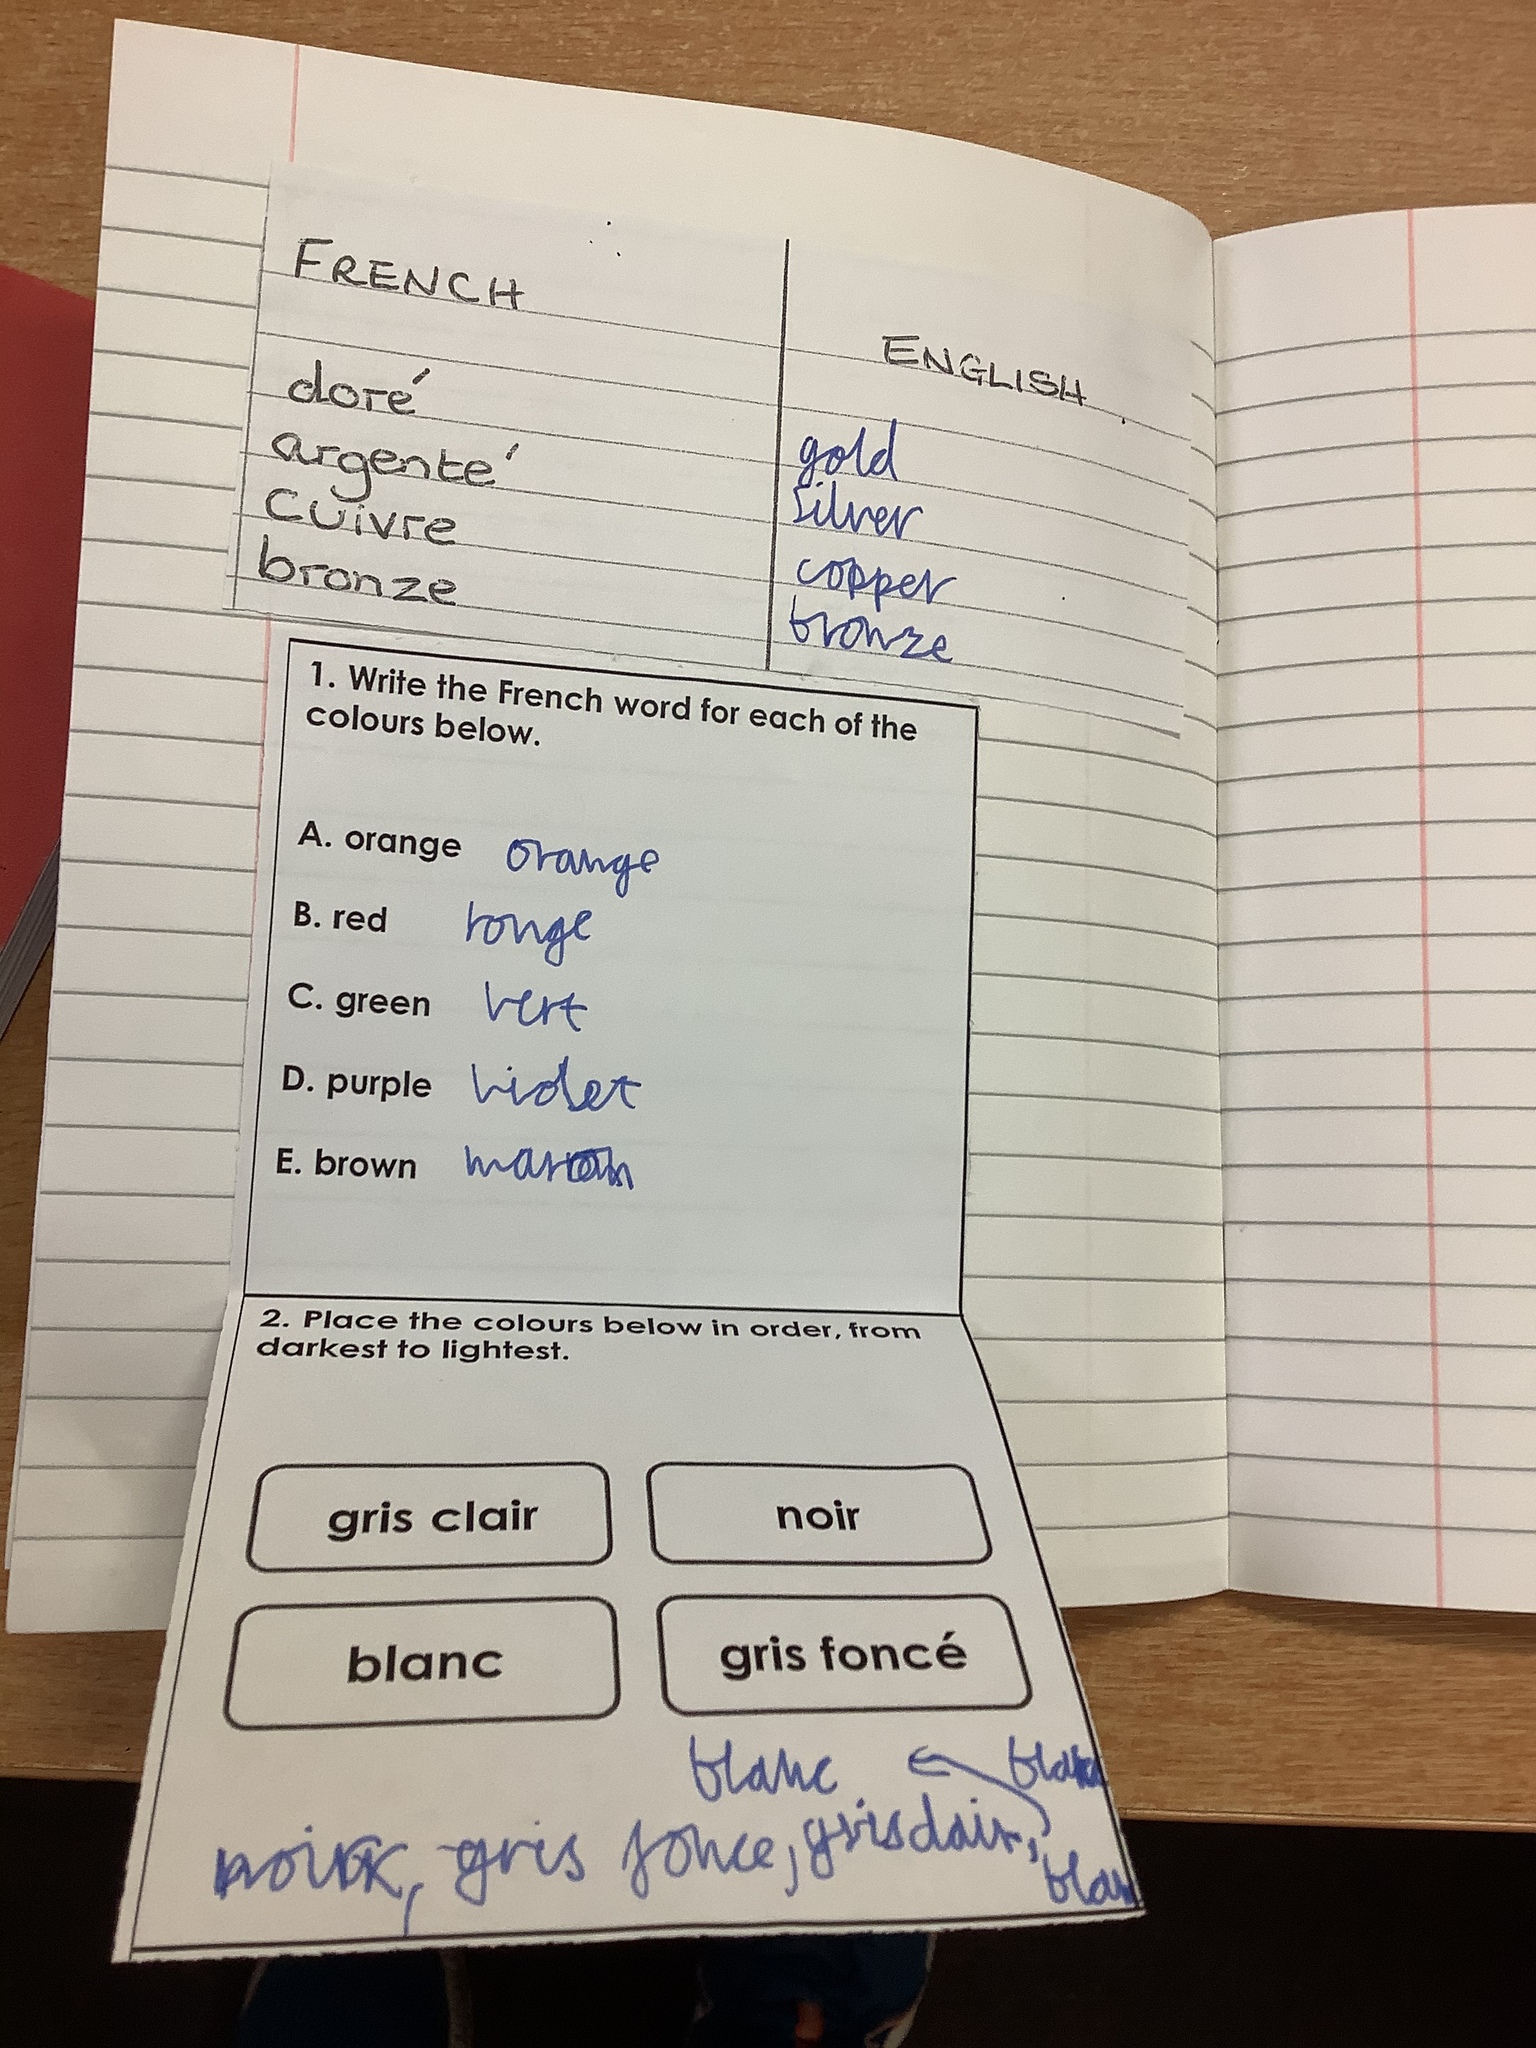 FRENCH
ENGLISH
doré
gold
argenté
silver
cuivre
copper
bronze
bronze
1. Write the French word for each of the
colours below.
A. orange orange
B. red rouge
C. green vert
D. purple violet
E. brown marron
2. Place the colours below in order, from
darkest to lightest.
gris clair
noir
blanc
gris foncé
blanc
noir, gris fonce, gris clair,
blan